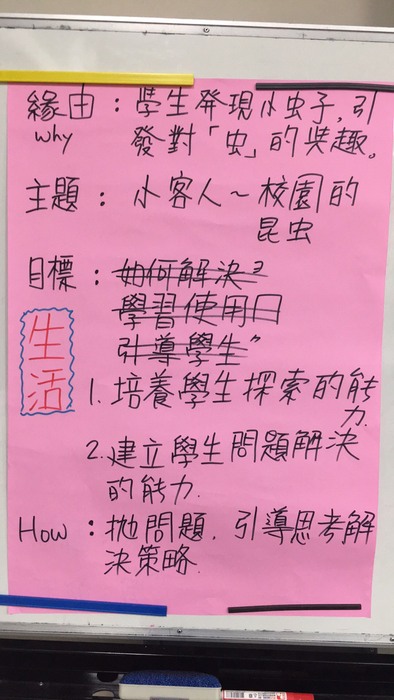 緣由：學生發現小虫子，引
why 發對「虫」的興趣。
主題：小客人～校園的
昆虫
目標：如何解決?
學習使用
引導學生"
生活
1. 培養學生探索的能
力.
2. 建立學生問題解決
的能力.
How：拋問題，引導思考解
決策略.